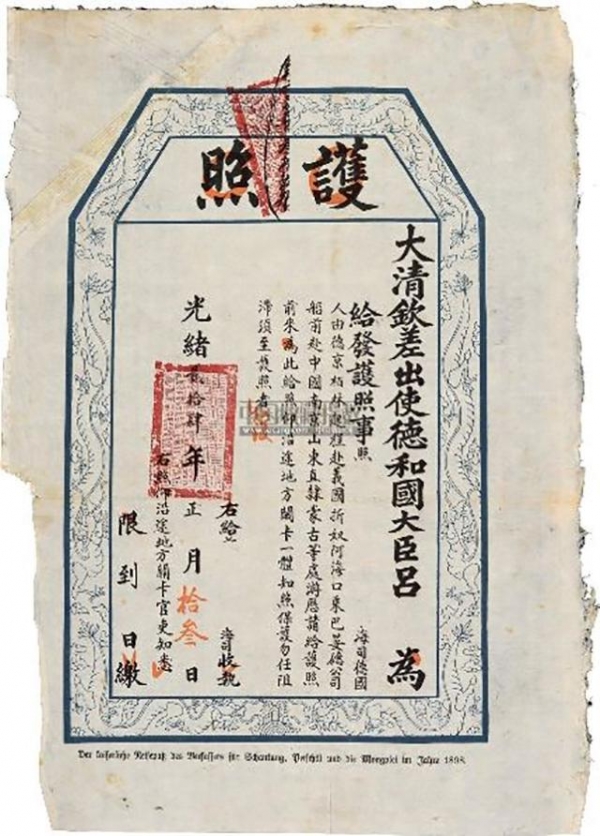 護照
大清欽差出使德和國大臣呂 為
給發護照事照 海司德國
人由德京栢林啟程赴義國折奴阿海口乘巴晏德公司
船前赴中國南京山東直隸蒙古等處游歷請給護照
前來為此給照仰沿途地方關卡一體知照保護勿任阻
滯須至護照者
右給 海司收執
光緒貳拾肆年正月拾叁日
右照仰沿途地方關卡官吏知悉
限到 日繳
Der kaiserliche Reisepaß des Verfassers für Schantung, Petschili und die Mongolei im Jahre 1898.